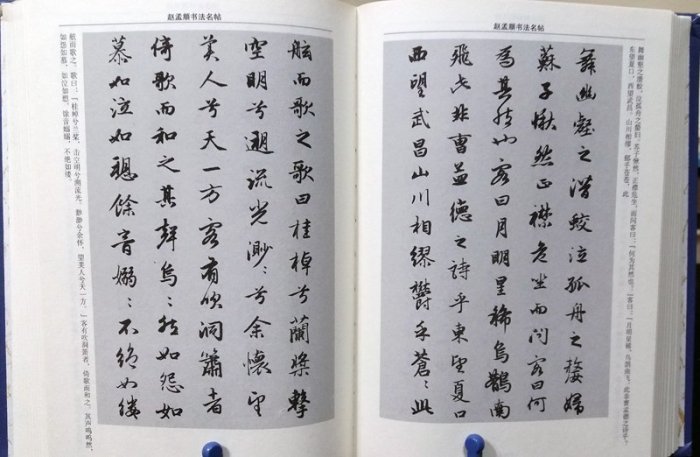 赵孟頫书法名帖
舷而歌之歌曰桂棹兮蘭槳擊
空明兮遡流光渺〻兮余懷望
美人兮天一方客有吹洞簫者
倚歌而和之其聲烏〻然如怨如
慕如泣如訴餘音嫋〻不絕如縷
舷而歌之。歌曰：「桂棹兮兰桨，击空明兮溯流光，渺渺兮余怀，望美人兮天一方。」客有吹洞箫者，倚歌而和之。其声呜呜然，
如怨如慕，如泣如诉，馀音嫋嫋，不绝如缕。
赵孟頫书法名帖
舞幽壑之潛蛟泣孤舟之嫠婦
蘇子愀然正襟危坐而問客曰何
為其然也客曰月明星稀烏鵲南
飛此非曹孟德之詩乎東望夏口
西望武昌山川相繆鬱乎蒼〻此
舞幽壑之潜蛟，泣孤舟之嫠妇。苏子愀然，正襟危坐，而问客曰：「何为其然也？」客曰：「月明星稀，乌鹊南飞，此非曹孟德之诗乎？
东望夏口，西望武昌，山川相缪，郁乎苍苍，此